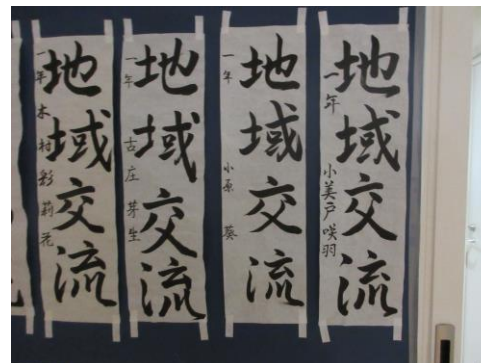 地域交流
一年 小美戸咲羽
地域交流
一年 小原 葵
地域交流
一年 古庄 芽生
地域交流
一年 木村彩莉花